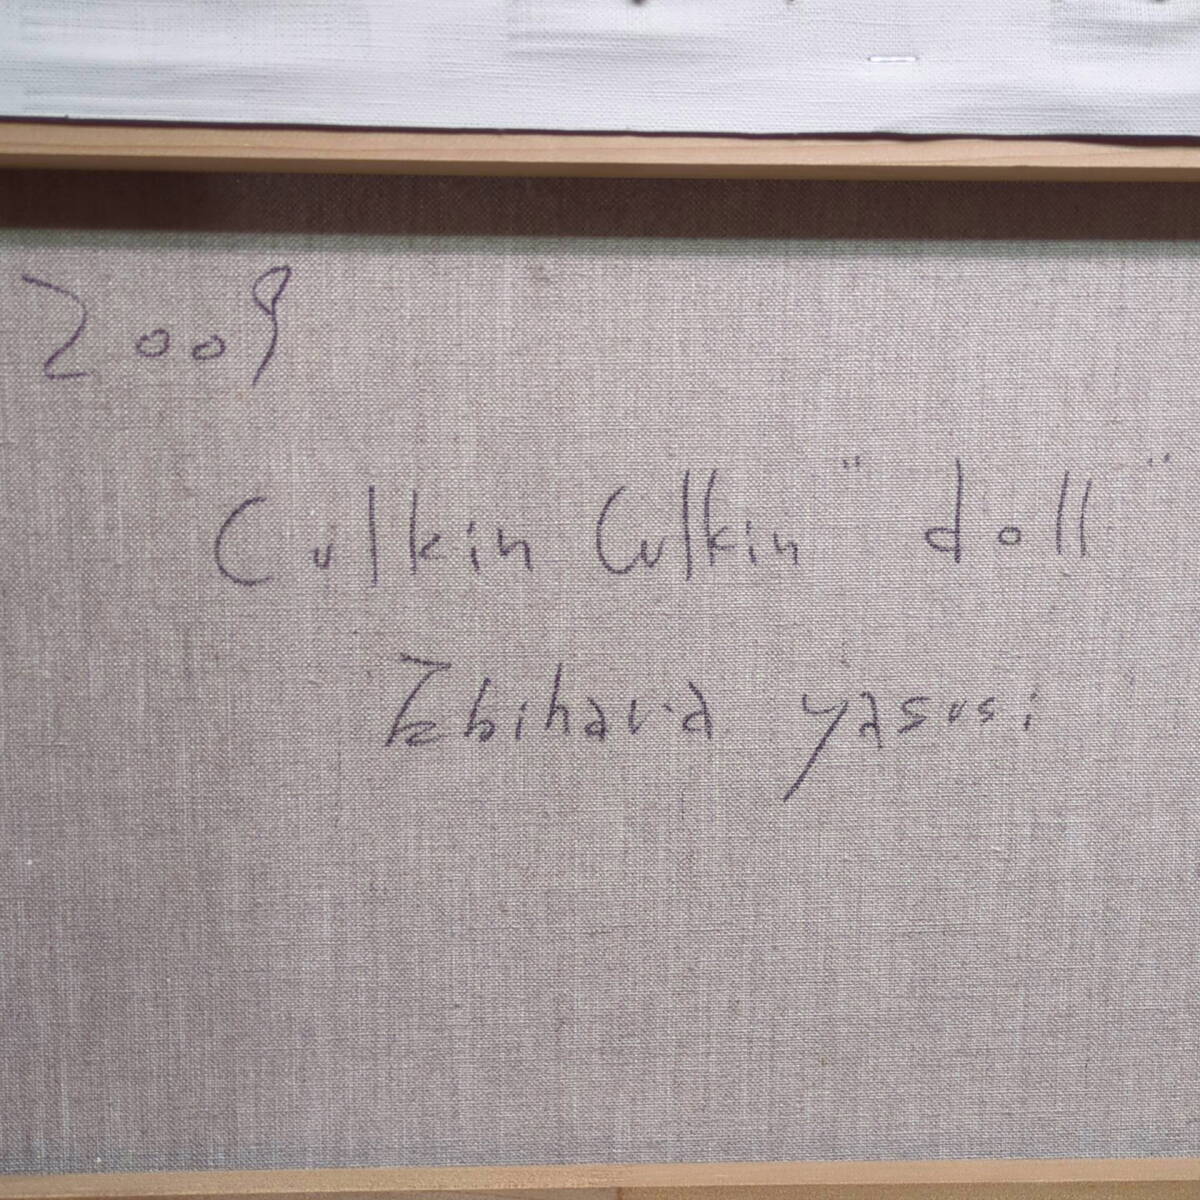 2009
Culkin Culkin "doll"
Ebihara yasusi